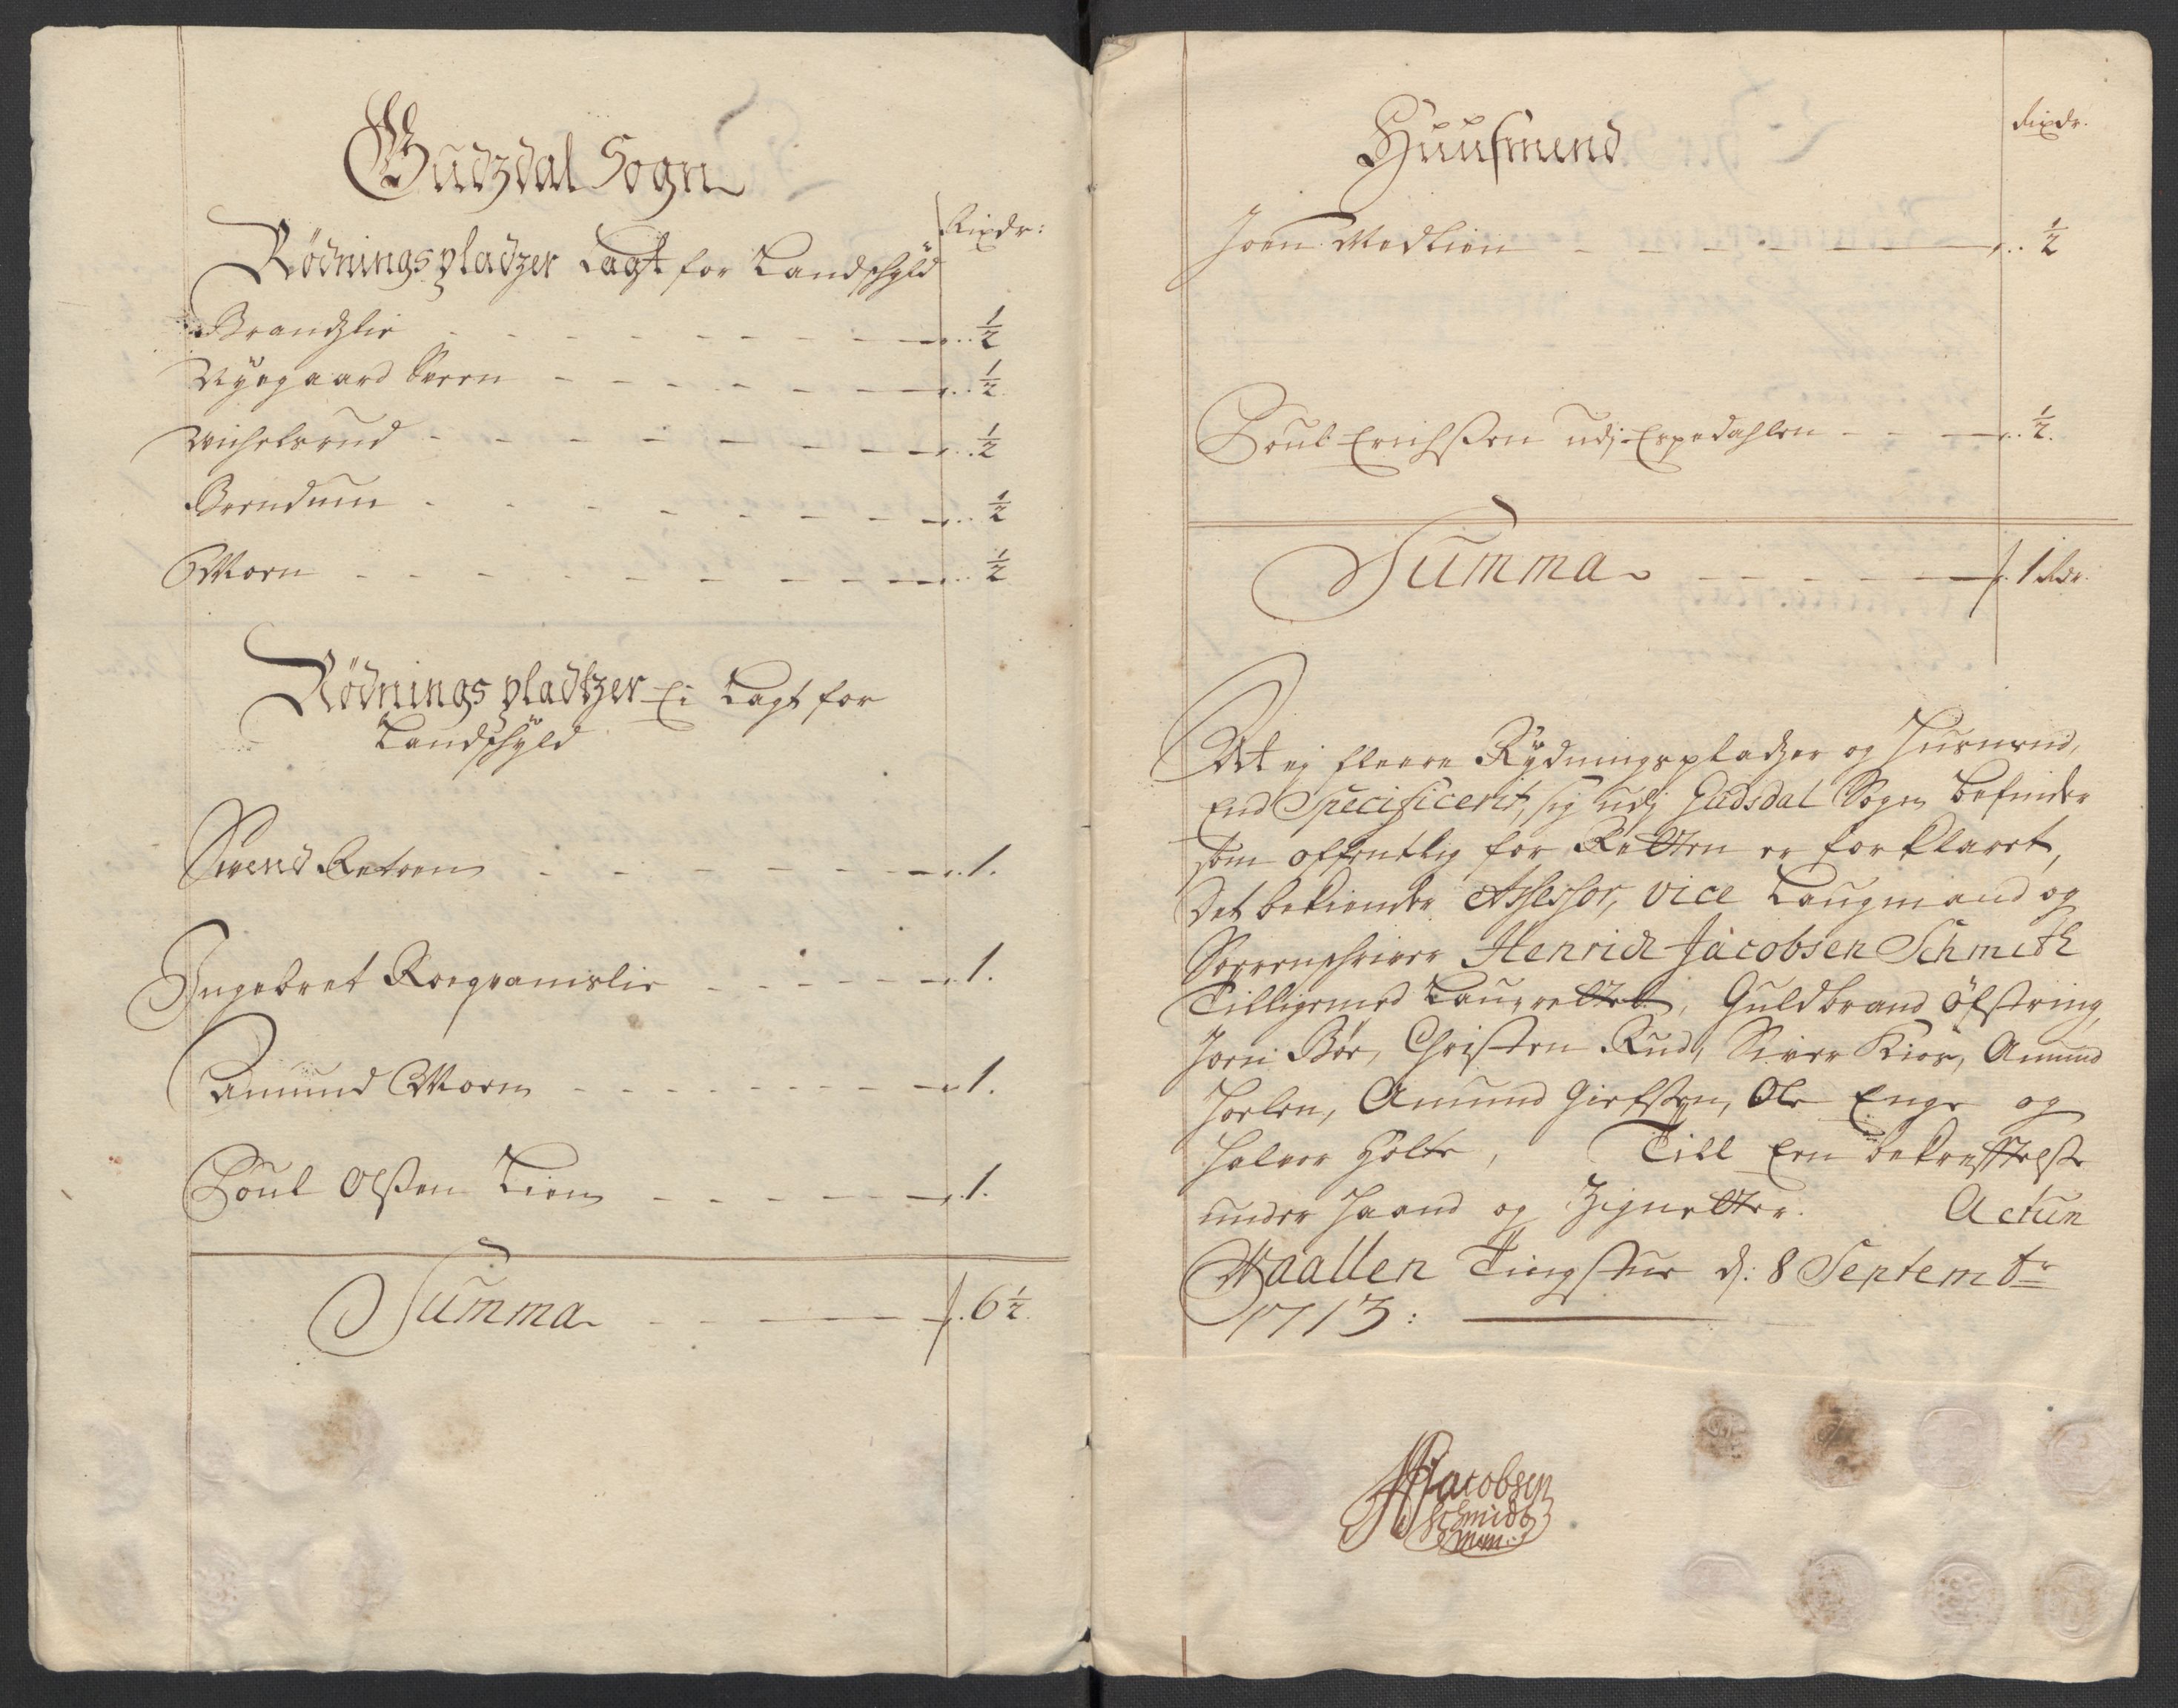 Gudzdal Sogn
Rixdr:
Rödningspladzer Lagt for Landschÿld
Brandzlie - - - - - - - - ½
Nÿegaard Øeren - - - - - - ½
Michelsrud - - - - - - - ½
Berndum - - - - - - - ½
Moen - - - - - - - - ½
Rödnings pladtzer Ei Lagt for
Landschÿld
Svend Retoen - - - - - - 1.
Ingebret Roeqvamslie - - - - - 1.
Amund Moen - - - - - - - - 1.
Poul Olsen Lien - - - - - 1.
Summa - - - - 6½
Huusmend
Rixdr.
Joen Medlien - - - - - - ½
Poul Erichsen udj Espedahlen - - - ½.
Summa - - - - - 1 Rdr.
At ej fleere Rÿdningspladzer og Huusmend,
End Specificerit, sig udj Gudsdal Sogn befinder
som offentlig for Retten er forklaret,
Det bekiender Assessor, vice Laugmand og
Sorrenschriver Henrich Jacobsen Schmith
Tilligemed Laugrettet, Guldbrand Öfstring,
Joen Bøe, Christen Rud, Siver Kior, Amund
Hoelen, Amund Giefsen, Ole Enge og
Halvor Holte, Till Een bekrefftelse
under Haand og Zignetter. Actum
Waallen Tingstue d: 8 Septembr
1713:
HJacobsen
Schmidt
Mpp: